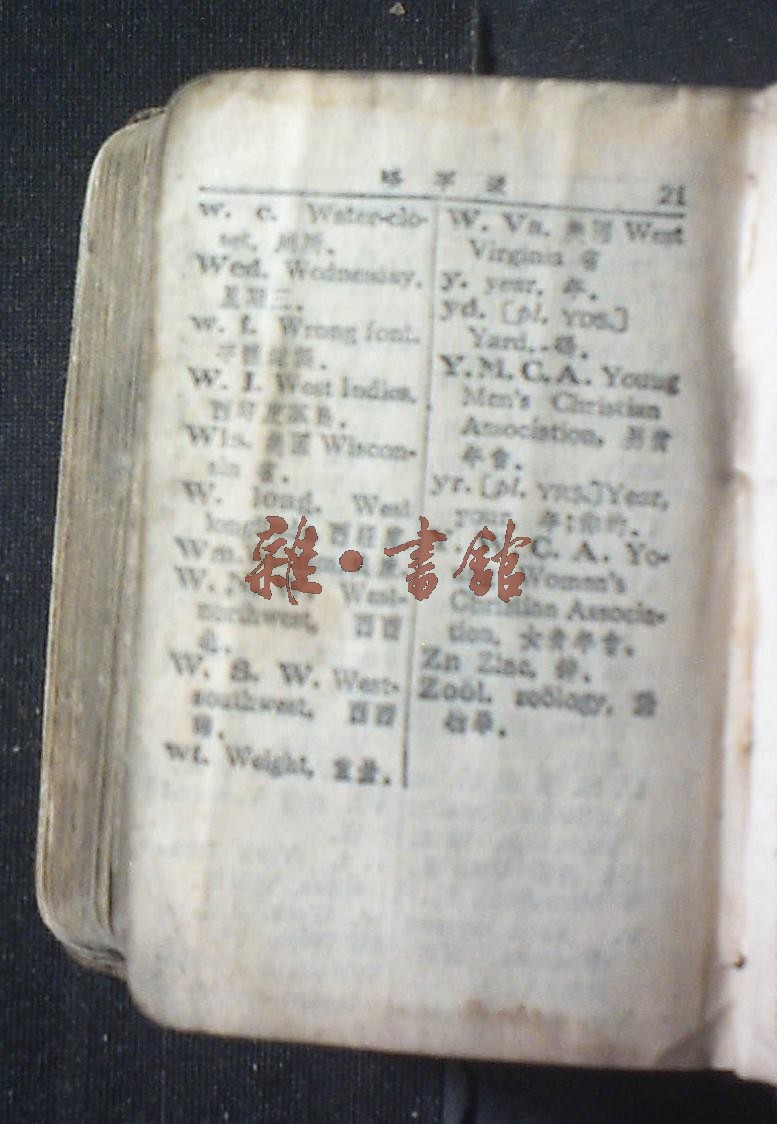 略字選 21
W. c. Water-clo-
set. 廁所.
Wed. Wednesday.
星期二.
w. f. Wrong font.
字體
W. I. West Indies.
西印度
Wis. 美國 Wiscon-
sin 省.
W. long. West
西
W.
W. N. West-
northwest. 西西
北.
W. S. W. West-
southwest. 西西
南.
wt. Weight. 重量.
W. Va. 美國 West
Virginia 省
y. year. 年.
yd. [pl. YDS.]
Yard. 碼.
Y. M. C. A. Young
Men's Christian
Association. 男青
年會.
yr. [pl. YRS.] Year,
your. 年;你的.
C. A. Yo-
Women's
Christian Associa-
tion. 女青年會.
Zn Zinc. 鋅.
Zoöl. zoölogy. 動
物學.
雜·書館